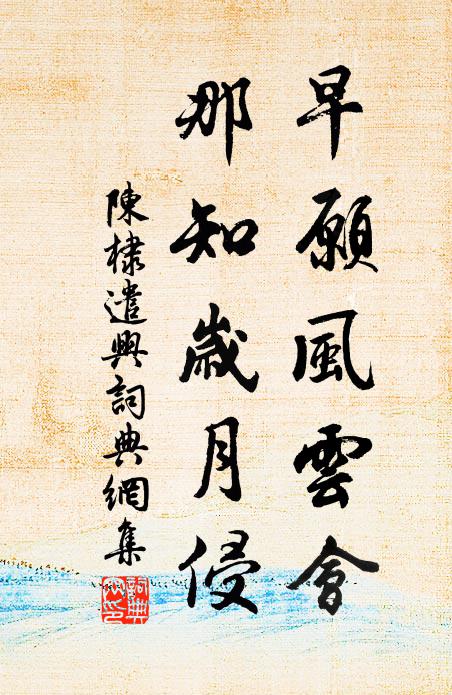 早願風雲會
那知歲月侵
陳棣遣興詞典網集